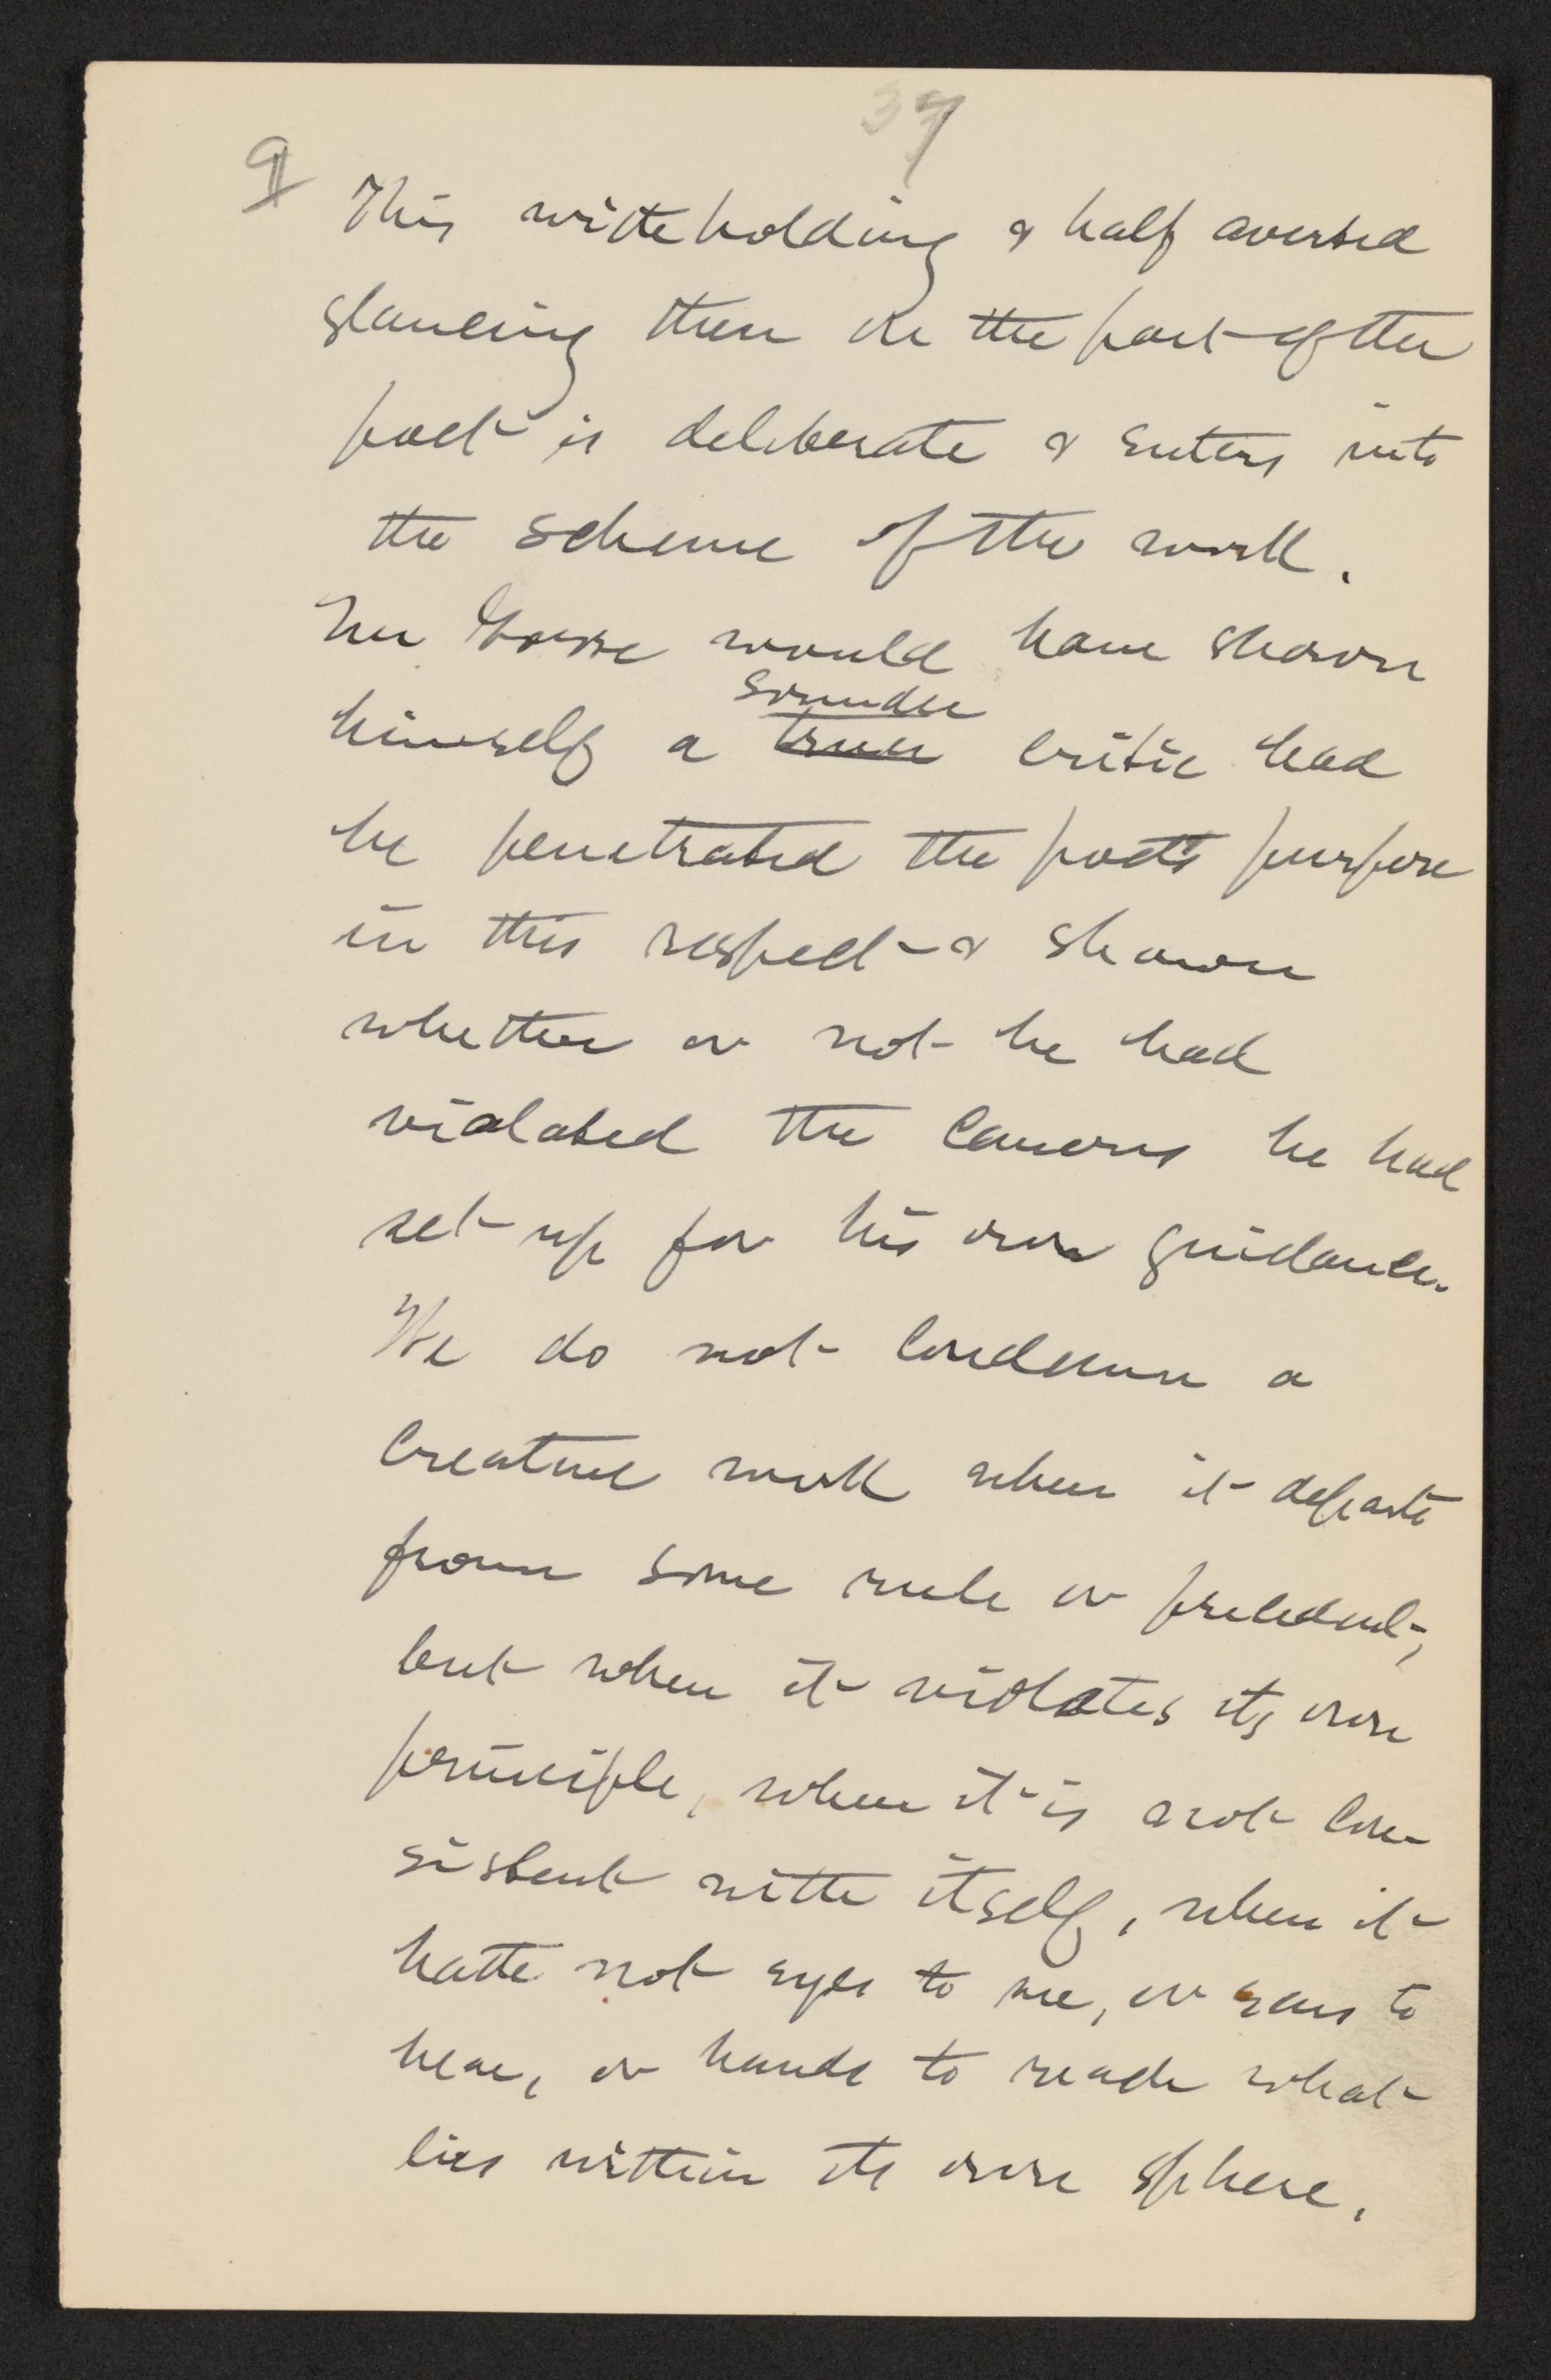 37
¶ This withholding & half averted
glancing then on the part of the
poet is deliberate & enters into
the scheme of the work.
Mr Gosse would have shown
sounder
himself a truer critic had
he penetrated the poet's purpose
in this respect & shown
whether or not he had
violated the canons he had
set up for his own guidance.
We do not condemn a
creative work when it departs
from some rule or precedent,
but when it violates its own
principle, when it is not con-
sistent with itself, when it
hath not eyes to see, or ears to
hear, or hands to reach what
lies within its own sphere.